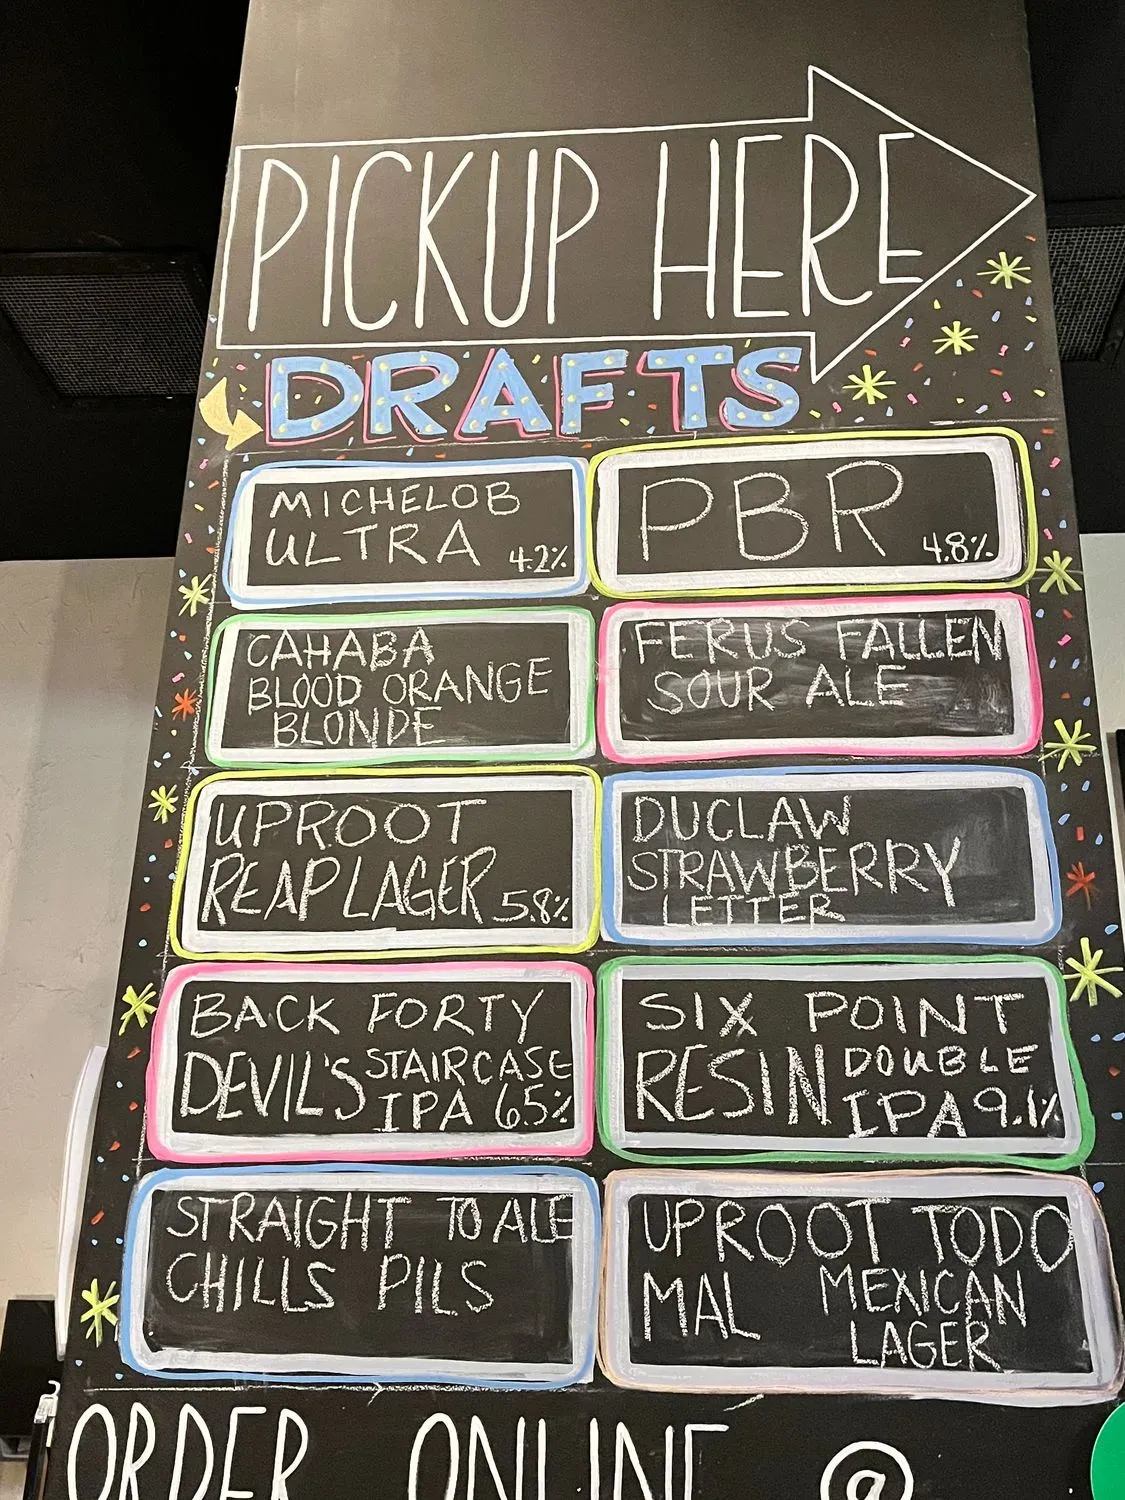 PICKUP HERE
DRAFTS
MICHELOB
ULTRA 4.2%
PBR 4.8%
CAHABA
BLOOD ORANGE
BLONDE
FERUS FALLEN
SOUR ALE
UPROOT
REAP LAGER 5.8%
DUCLAW
STRAWBERRY
LETTER
BACK FORTY
DEVIL'S STAIRCASE
IPA 6.5%
SIX POINT
RESIN DOUBLE
IPA 9.1%
STRAIGHT TO ALE
CHILLS PILS
UPROOT TODO
MAL MEXICAN
LAGER
ORDER ONLINE @